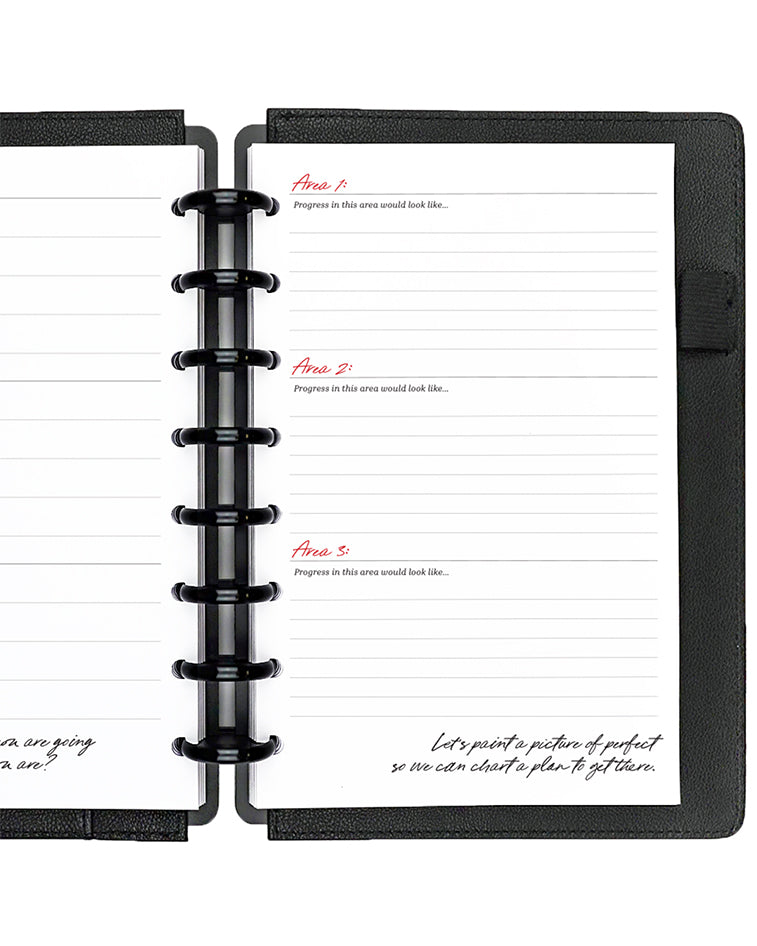 ou are going
u are?
Area 1:
Progress in this area would look like...
Area 2:
Progress in this area would look like...
Area 3:
Progress in this area would look like...
Let's paint a picture of perfect
so we can chart a plan to get there.